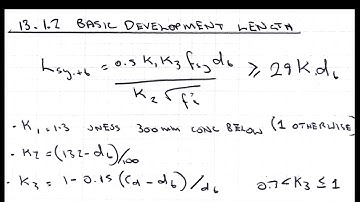 13.1.2 BASIC DEVELOPMENT LENGTH
Lsy.tb = 0.5 K1 K3 fsy db / K2 √f'c ≥ 29 K1 db
- K1 = 1.3 UNESS 300mm CONC BELOW (1 OTHERWISE)
- K2 = (132 - db)/100
- K3 = 1 - 0.15 (Cd - db)/db 0.7 < K3 ≤ 1